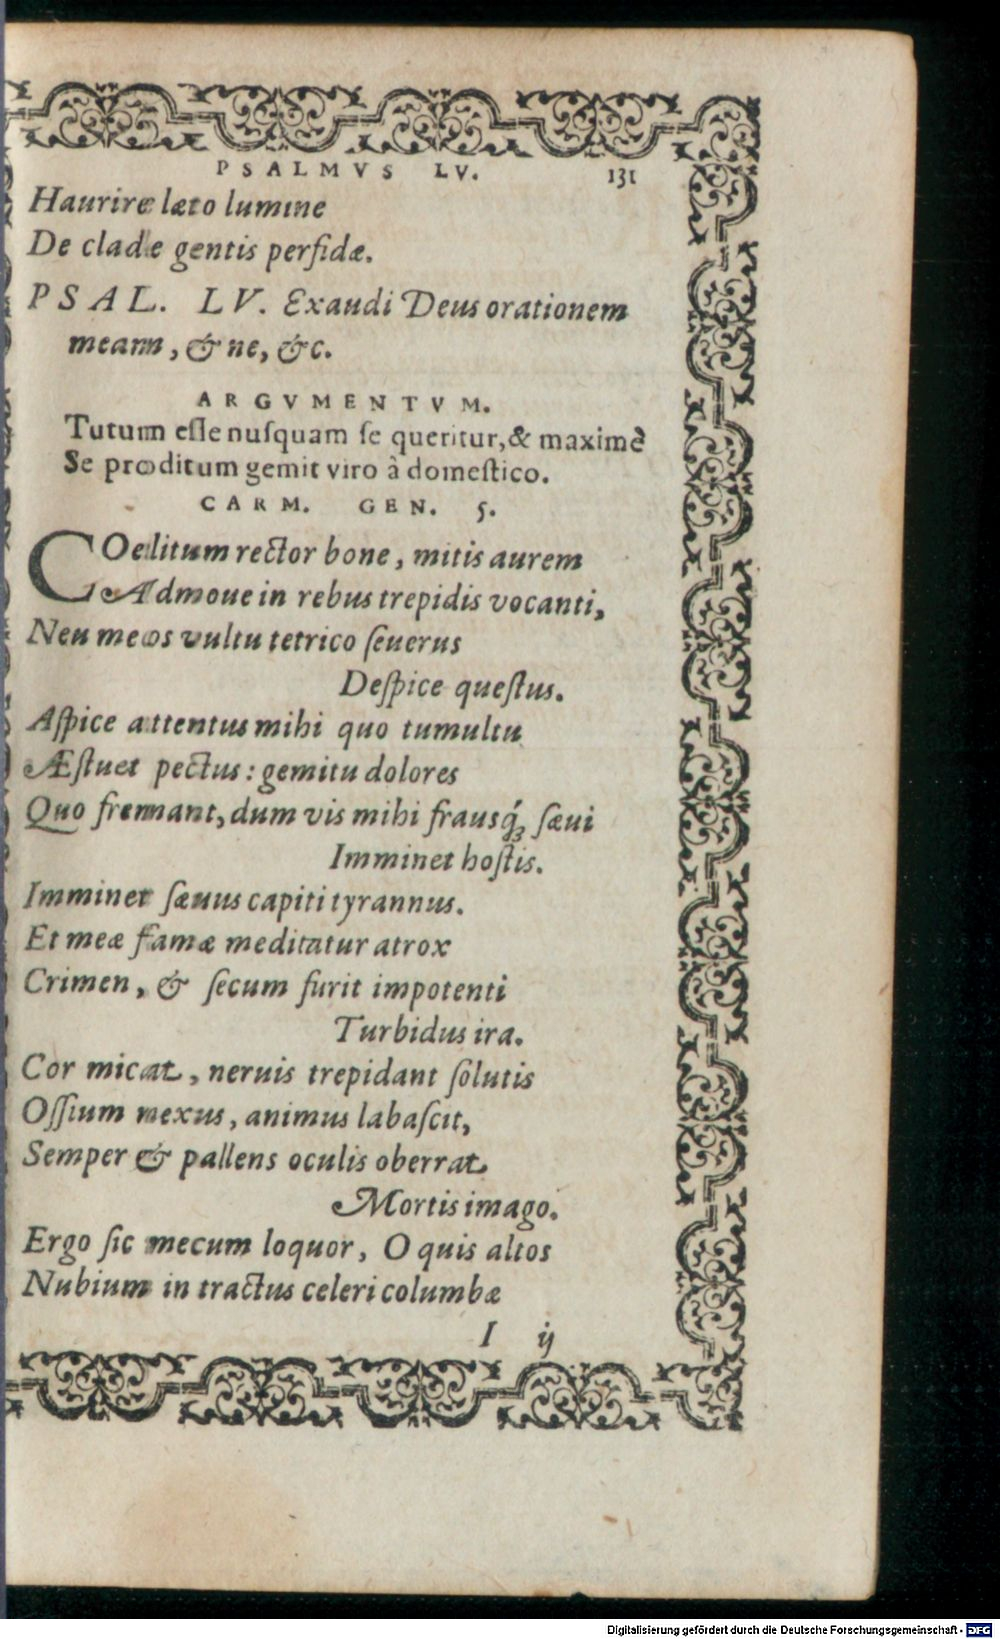 PSALMVS LV. 131
Haurire læto lumine
De clade gentis perfidæ.
PSAL. LV. Exaudi Deus orationem
meam, & ne, &c.
ARGVMENTVM.
Tutum esse nusquam se queritur, & maximè
Se proditum gemit viro à domestico.
CARM. GEN. 5.
COelitum rector bone, mitis aurem
Admoue in rebus trepidis vocanti,
Neu meos vultu tetrico seuerus
Despice questus.
Aspice attentus mihi quo tumultu
Æstuet pectus: gemitu dolores
Quo fremant, dum vis mihi frausq́; sæui
Imminet hostis.
Imminet sæuus capiti tyrannus.
Et meæ famæ meditatur atrox
Crimen, & secum furit impotenti
Turbidus ira.
Cor micat, neruis trepidant solutis
Ossium nexus, animus labascit,
Semper & pallens oculis oberrat
Mortis imago.
Ergo sic mecum loquor, O quis altos
Nubium in tractus celeri columbæ
I ij
Digitalisierung gefördert durch die Deutsche Forschungsgemeinschaft - DFG